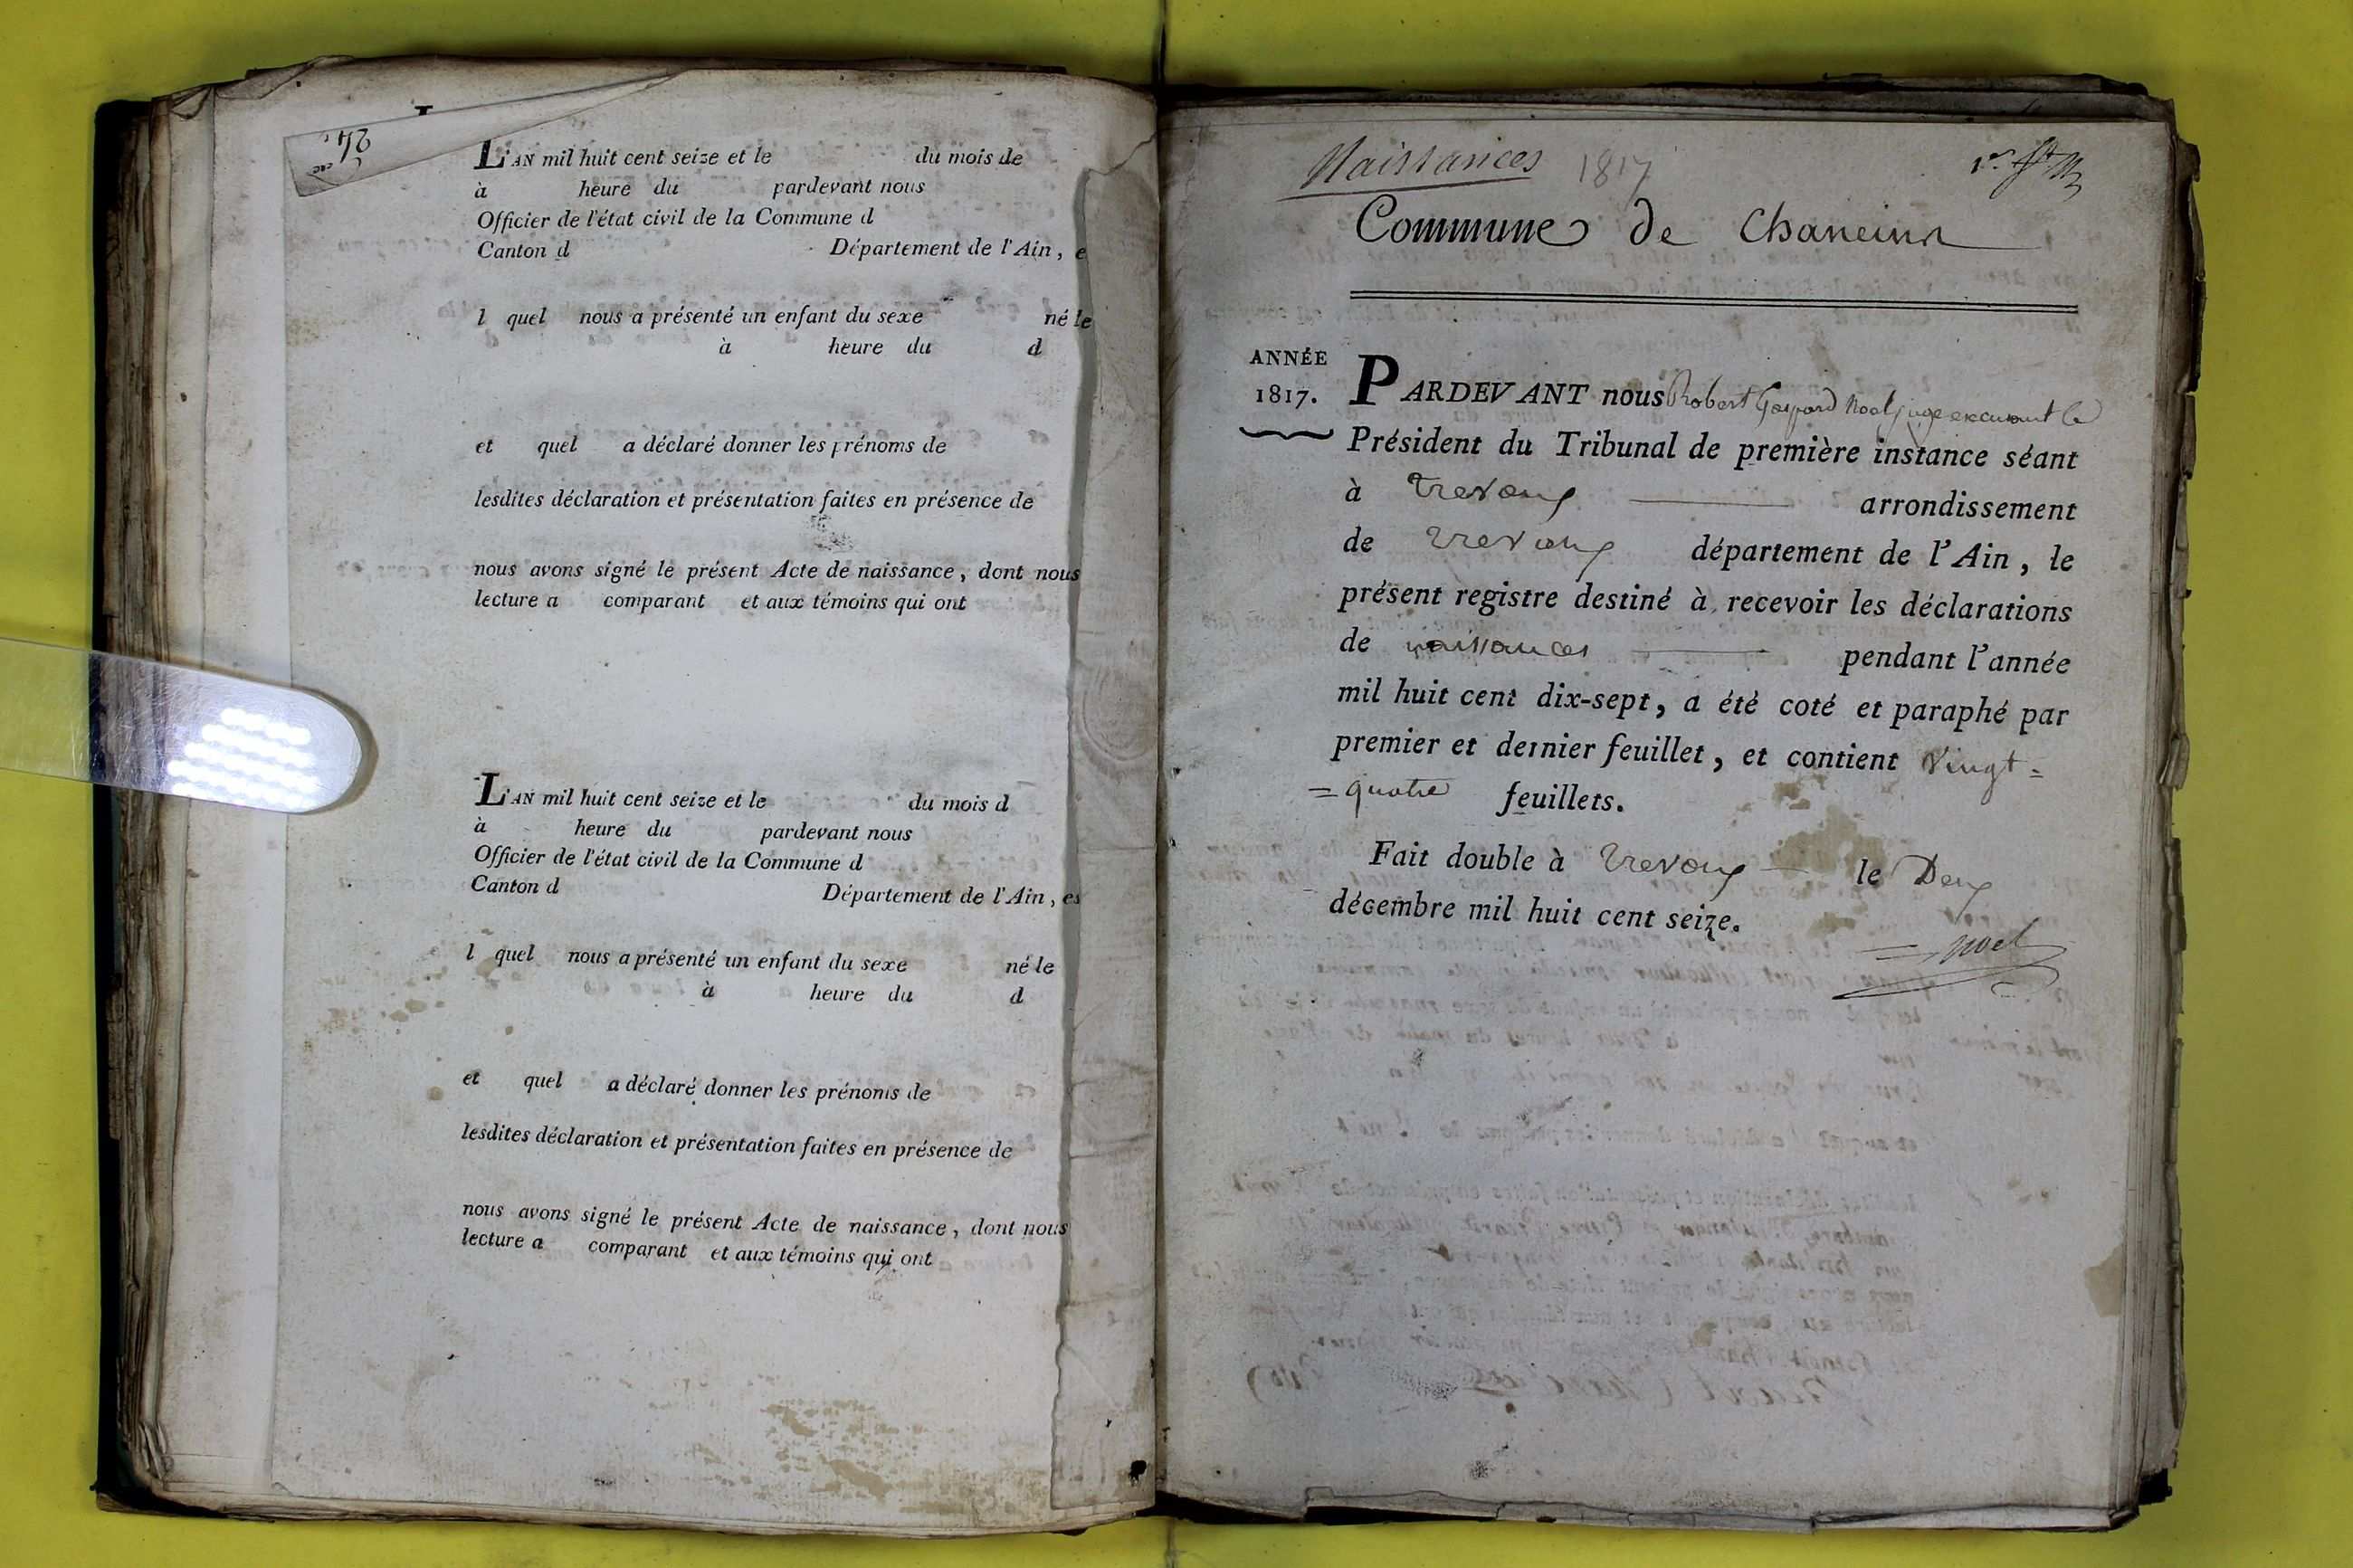 24
L'AN mil huit cent seize et le du mois de
à heure du pardevant nous
Officier de l'état civil de la Commune d
Canton d Département de l'Ain, e
l quel nous a présenté un enfant du sexe né le
à heure du d
et quel a déclaré donner les prénoms de
lesdites déclaration et présentation faites en présence de
nous avons signé le présent Acte de naissance, dont nous
lecture a comparant et aux témoins qui ont
L'AN mil huit cent seize et le du mois d
à heure du pardevant nous
Officier de l'état civil de la Commune d
Canton d Département de l'Ain, es
l quel nous a présenté un enfant du sexe né le
à heure du d
et quel a déclaré donner les prénoms de
lesdites déclaration et présentation faites en présence de
nous avons signé le présent Acte de naissance, dont nous
lecture a comparant et aux témoins qui ont
Naissances 1817
Commune de Chaneins
ANNÉE
1817.
PARDEVANT nous Robert Gaspard Noel juge exerçant le
Président du Tribunal de première instance séant
à Trevoux arrondissement
de Trevoux département de l'Ain, le
présent registre destiné à recevoir les déclarations
de naissances pendant l'année
mil huit cent dix-sept, a été coté et paraphé par
premier et dernier feuillet, et contient vingt=
=quatre feuillets.
Fait double à Trevoux le Deux
décembre mil huit cent seize.
Noel